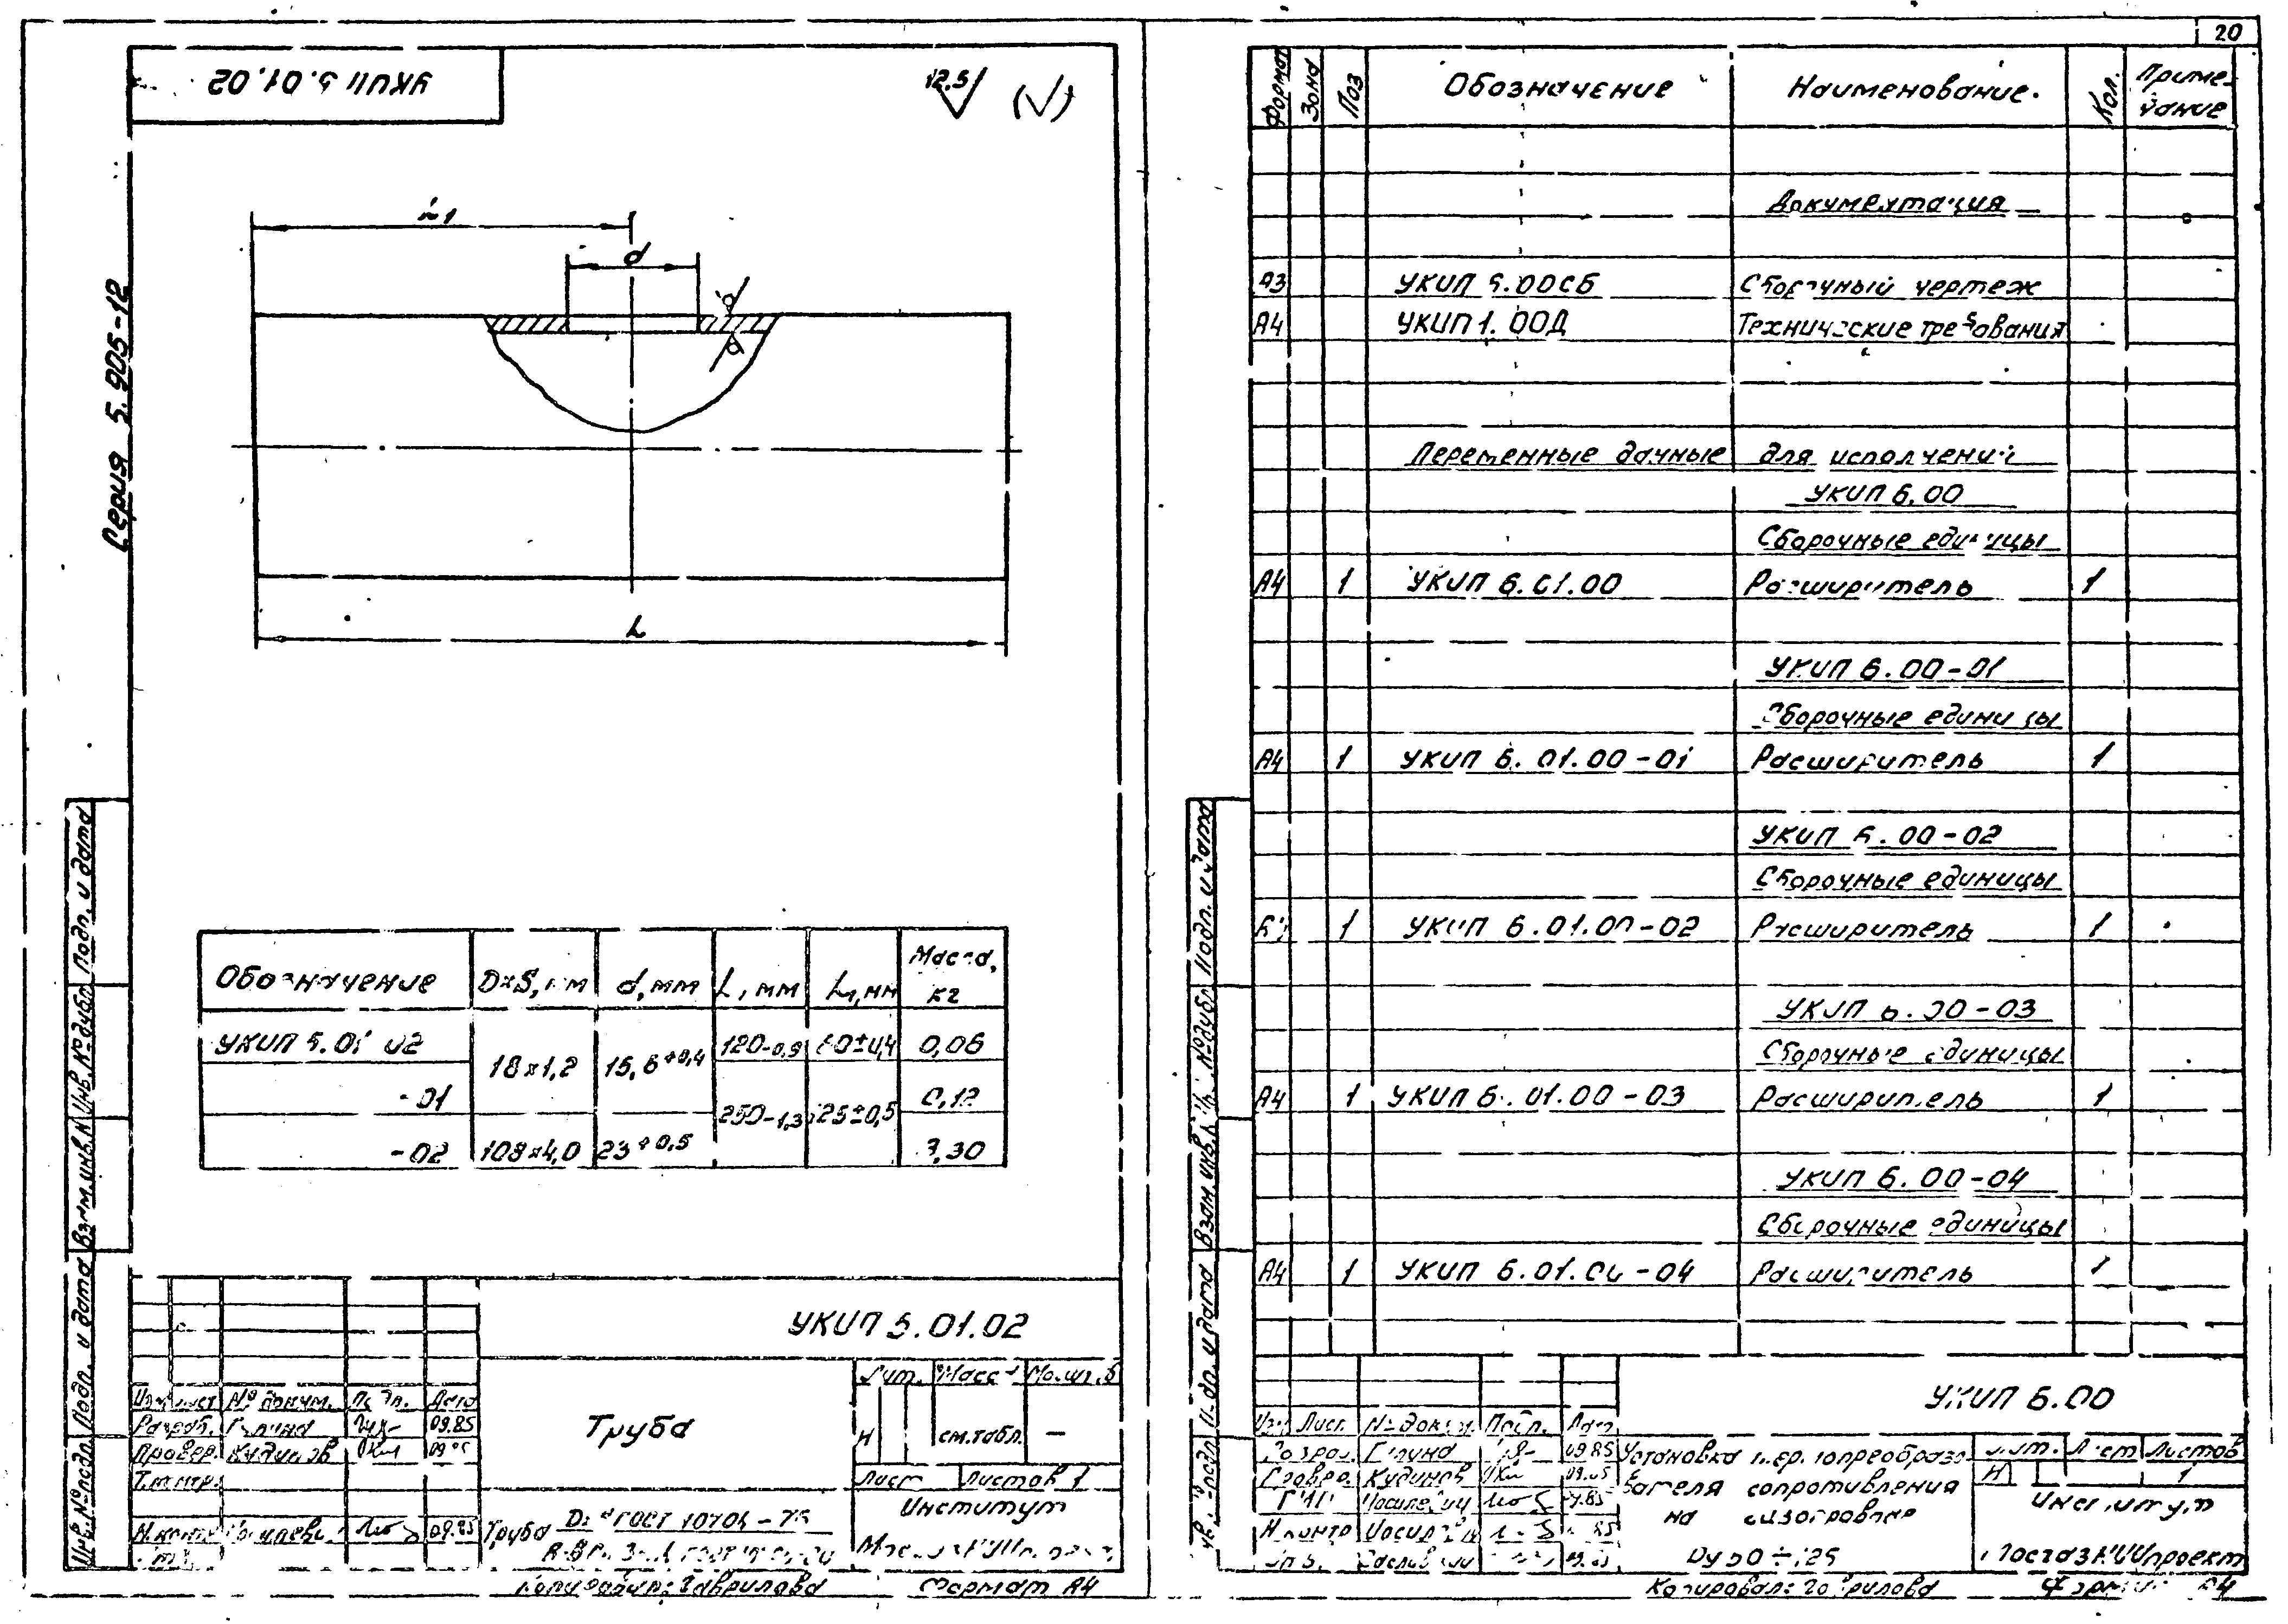 20
УКИП 5.01.02
12,5
Серия 5.905-12
L1
d
L
Обозначение DxS, мм d, мм L, мм L1, мм Масса, кг
УКИП 5.01.02 18x1,2 15,6+0,4 120-0,9 60±0,4 0,06
-01 250-1,3 125±0,5 0,12
-02 108x4,0 23+0,5 30
Подп. и дата
Инв. № дубл.
Взам. инв. №
Подп. и дата
Инв. № подл.
УКИП 5.01.02
Лит. Масса Масшт.б
Изм. Лист № докум. Подп. Дата
Разраб. 09.85
Провер. Кудинов
Т.контр.
Н.контр. 09.85
Труба
Н см.табл. —
Лист Листов 1
Институт
Труба ГОСТ 10704-76
Копировал: Гаврилова Формат А4
Формат Зона Поз Обозначение Наименование. Кол. Приме-
чание
Документация
А3 УКИП 6.00СБ Сборочный чертеж
А4 УКИП1.00Д Технические требования
Переменные данные для исполнений
УКИП 6.00
Сборочные единицы
А4 1 УКИП 6.01.00 Расширитель 1
УКИП 6.00-01
Сборочные единицы
А4 1 УКИП 6.01.00-01 Расширитель 1
УКИП 6.00-02
Сборочные единицы
1 УКИП 6.01.00-02 Расширитель 1
УКИП 6.00-03
Сборочные единицы
А4 1 УКИП 6.01.00-03 Расширитель 1
УКИП 6.00-04
Сборочные единицы
А4 1 УКИП 6.01.00-04 Расширитель 1
Подп. и дата
Инв. № дубл.
Взам. инв. №
Подп. и дата
УКИП 6.00
Изм Лист № докум. Подп. Дата
Разраб. 09.85
Провер. Кудинов
Н.контр
Установка термопреобразо-
вателя сопротивления
на газопроводе
Лит. Лист Листов
Н 1
Институт
МосгазНИИпроект
Копировал: Гаврилова Формат А4